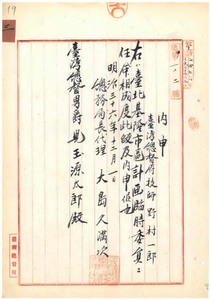 19
内申
臺灣總督府技師野村一郎
右ハ臺北基隆市區計畫臨時委員ニ
任命相成度此段及内申候也
明治三十六年十二月一日
總務局長代理 大島久滿次
臺灣總督男爵兒玉源太郎殿